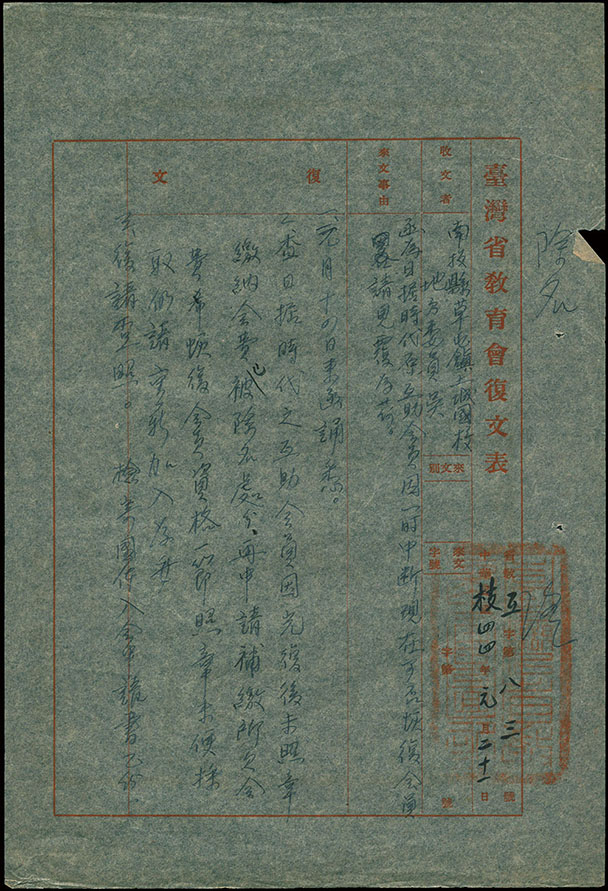 除名
臺灣省教育會復文表
發文 互字第八三號
中華 民國 核四四年元月二十一日
收文者
南投縣草屯鎮土城國校
地方委員吳
來文機關
來文字號
字第 號
來文事由
函為日據時代原互助會員因一時中斷現在可否恢復會員
請見覆由。
復文
一、元月十四日來函誦悉。
二、查日據時代之互助會員因光復後未照章
繳納會費已被除名處分、再申請補繳所欠會
費希恢復會員資格一節照章未便採
取仍請重新加入為荷
三、復請查照。 檢寄團体入會申請書一份